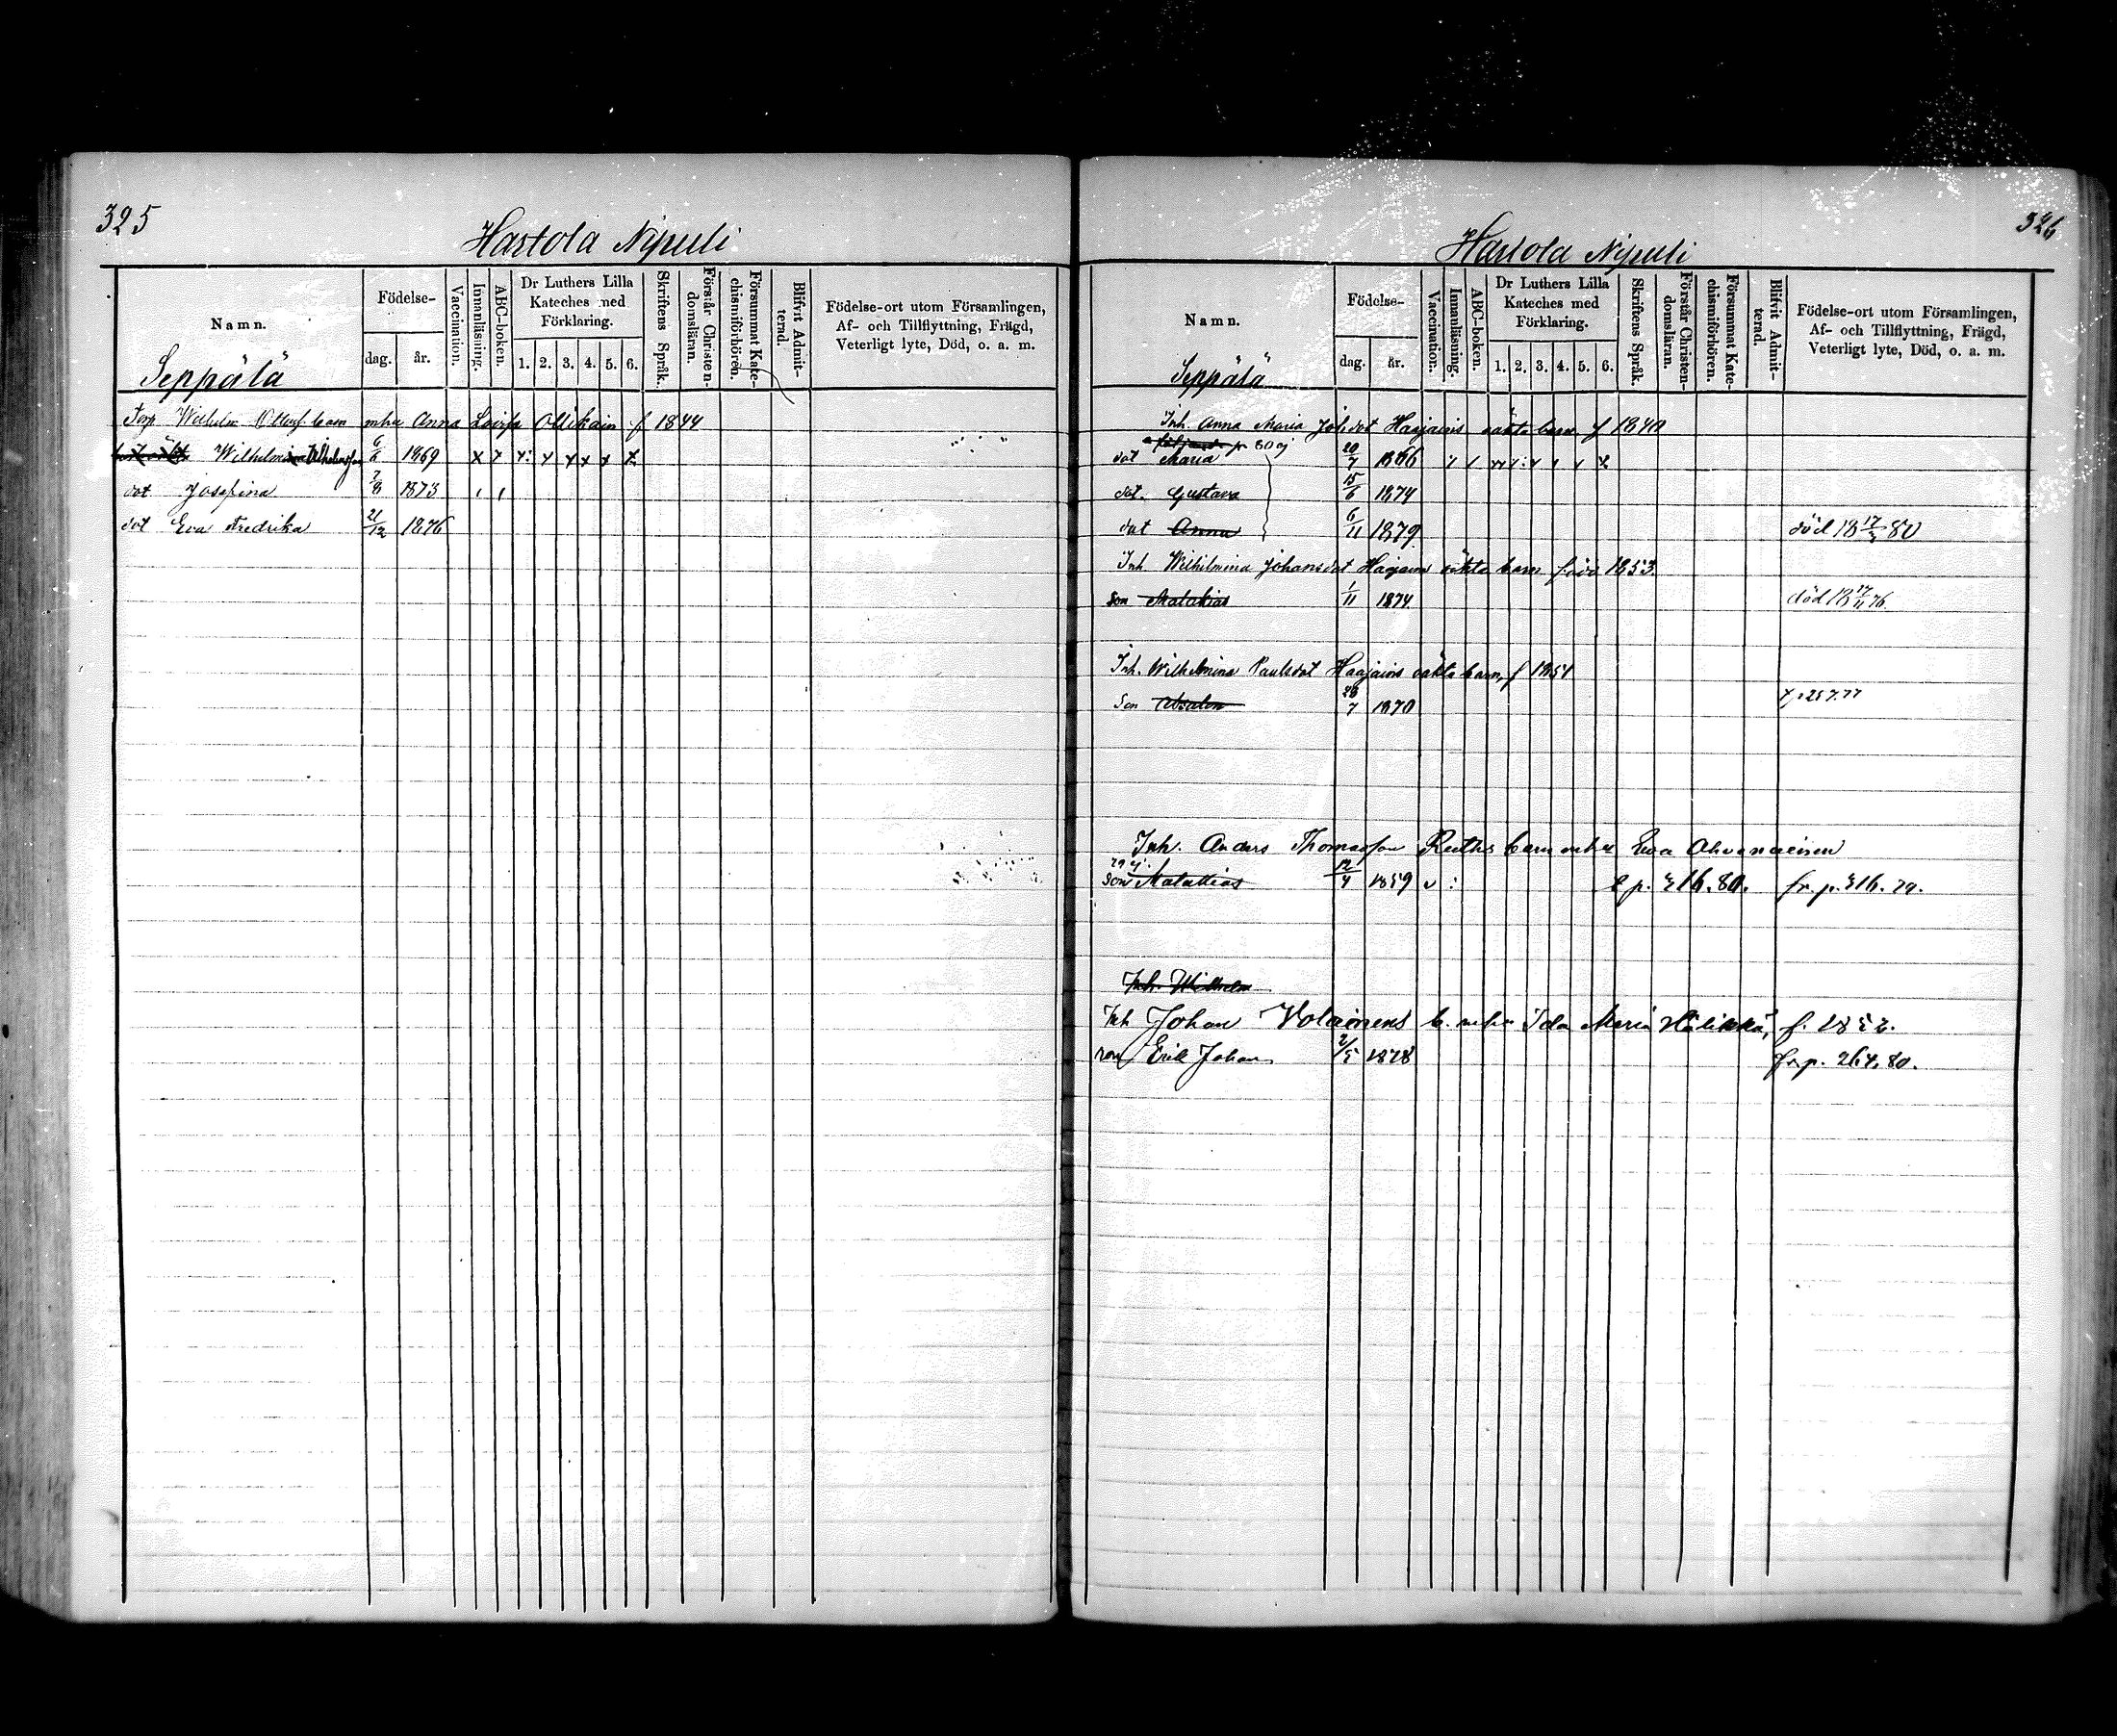 325
Hartola Nipuli
Namn.
Födelse-
dag.
år.
Vaccination.
Innanläsning.
ABC-boken.
Dr Luthers Lilla
Kateches med
Förklaring.
1. 2. 3. 4. 5. 6.
Skriftens Språk.
Förstår Christen-
domsläran.
Försummat Kate-
chismiförhören.
Blifvit Admit-
terad.
Födelse-ort utom Församlingen,
Af- och Tillflyttning, Frägd,
Veterligt lyte, Död, o. a. m.
Seppälä
Torp. Wilhelm barn mhu Anna Lovisa Ollikain f 1844
Wilhelmina 6 1869 x x x x x x
dot Josefina 7/8 1873
dot Eva Fredrika 21/12 1876
326
Hartola Nipuli
Namn.
Födelse-
dag.
år.
Vaccination.
Innanläsning.
ABC-boken.
Dr Luthers Lilla
Kateches med
Förklaring.
1. 2. 3. 4. 5. 6.
Skriftens Språk.
Förstår Christen-
domsläran.
Försummat Kate-
chismiförhören.
Blifvit Admit-
terad.
Födelse-ort utom Församlingen,
Af- och Tillflyttning, Frägd,
Veterligt lyte, Död, o. a. m.
Seppälä
Inh. Anna Maria Johdot Haajains oäkta barn f 1840
dot Maria 20/7 1866
dot. Gustava 15/6 1874
dot Anna 6/11 1879 död 18 17 80
Inh Wilhelmina Johansdot oäkta barn född 1853.
son Malakias 1/11 1874 död 18 17/11 76.
Inh. Wilhelmina Paulsdot Haajains oäkta barn, f 1851
Son Absalon 28/7 1870 p 257.77
Inh. Anders Thomasson barn mhu Eva Ahvenainen
79 ej.
son Matattias 12/4 1859 p. 516. 80. fr. p. 516. 79.
Inh. Wilhelm
Inh Johan Volainens b. mhu Ida Maria f. 1852.
son Erik Johan 2/5 1878 fr p. 264. 80.